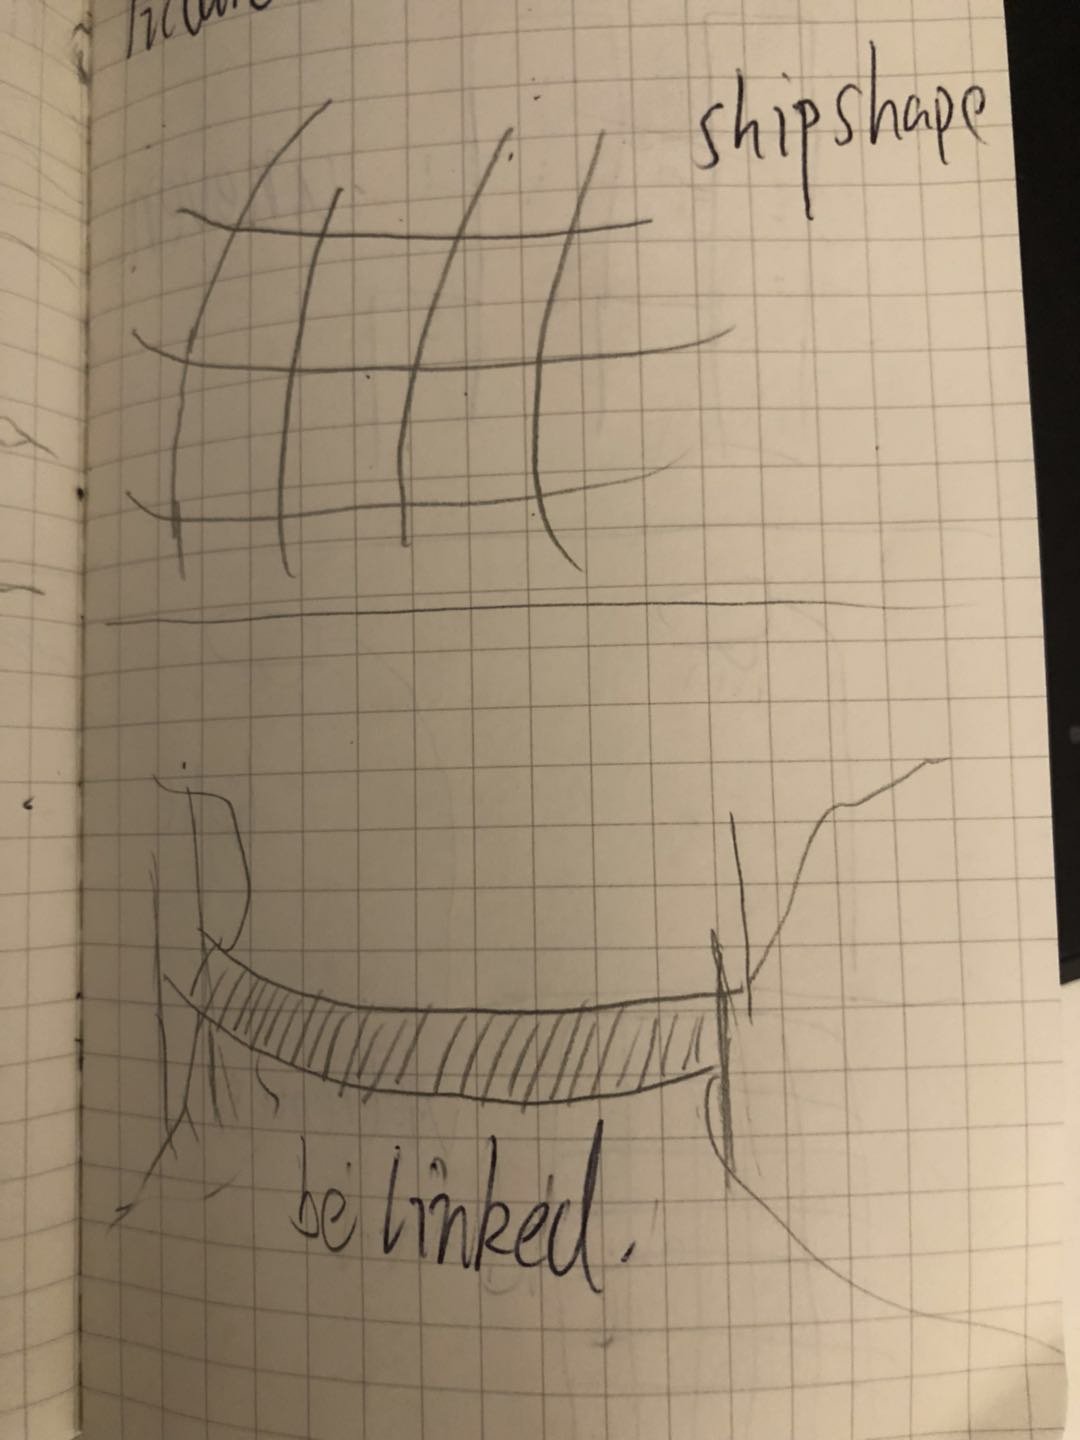 shipshape
be linked.